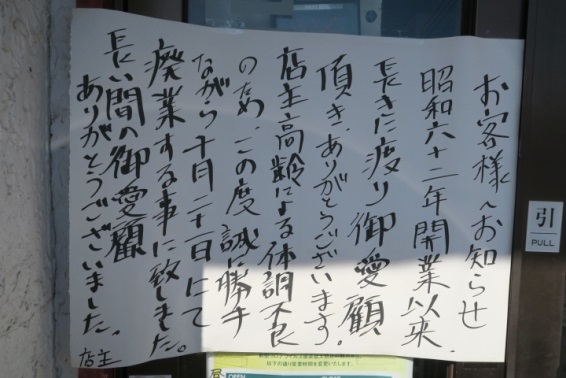 お客様へお知らせ
昭和六十二年開業以来、
長きに渡り御愛顧
頂き、ありがとうございます。
店主高齢による体調不良
のため、この度誠に勝手
ながら十月二十一日にて
廃業する事に致しました。
長い間の御愛顧
ありがとうございました。
店主
引
PULL
以下の通り営業時間を変更いたします
OPEN